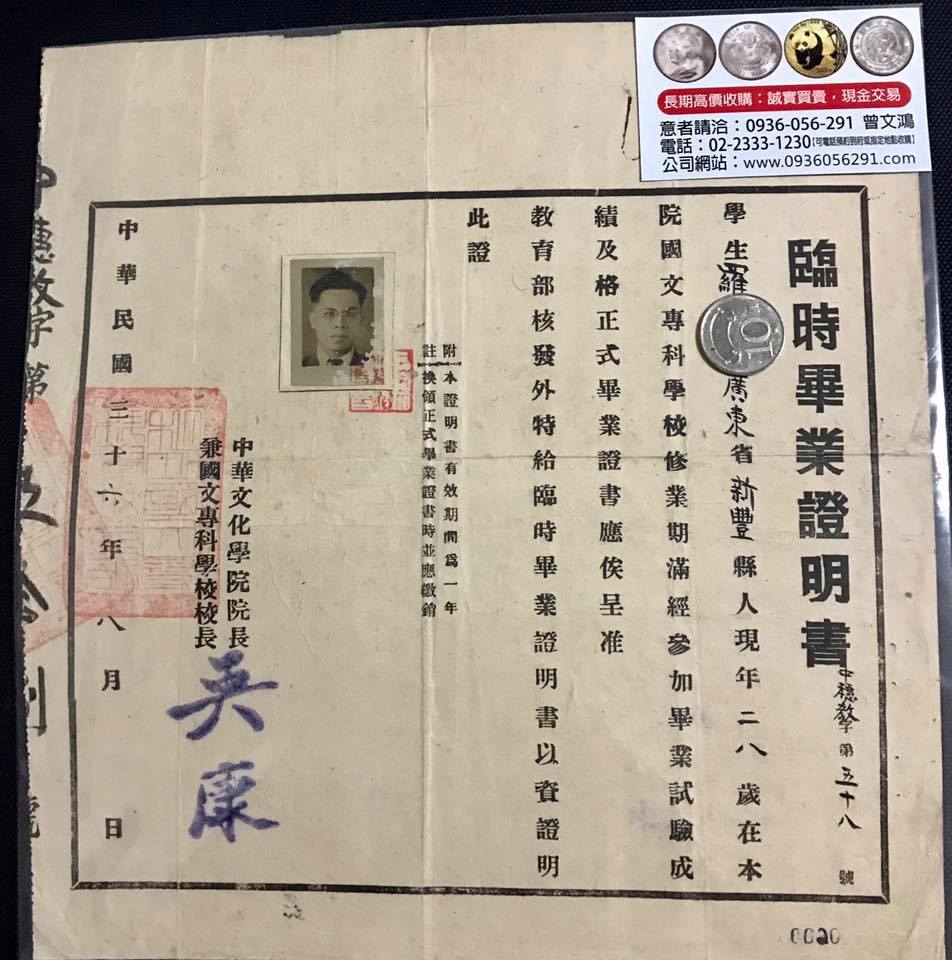 長期高價收購：誠實買賣，現金交易
意者請洽：0936-056-291 曾文鴻
電話：02-2333-1230【可電話預約到府或指定地點收購】
公司網站：www.0936056291.com
臨時畢業證明書
中穗教字第五十八號
學生羅
10
廣東省新豐縣人現年二八歲在本
院國文專科學校修業期滿經參加畢業試驗成
績及格正式畢業證書應俟呈准
教育部核發外特給臨時畢業證明書以資證明
此證
附 本證明書有效期間為一年
註 換領正式畢業證書時並應繳銷
中華文化學院院長
兼國文專科學校校長
吳康
中華民國三十六年八月 日
中穗教字第
號